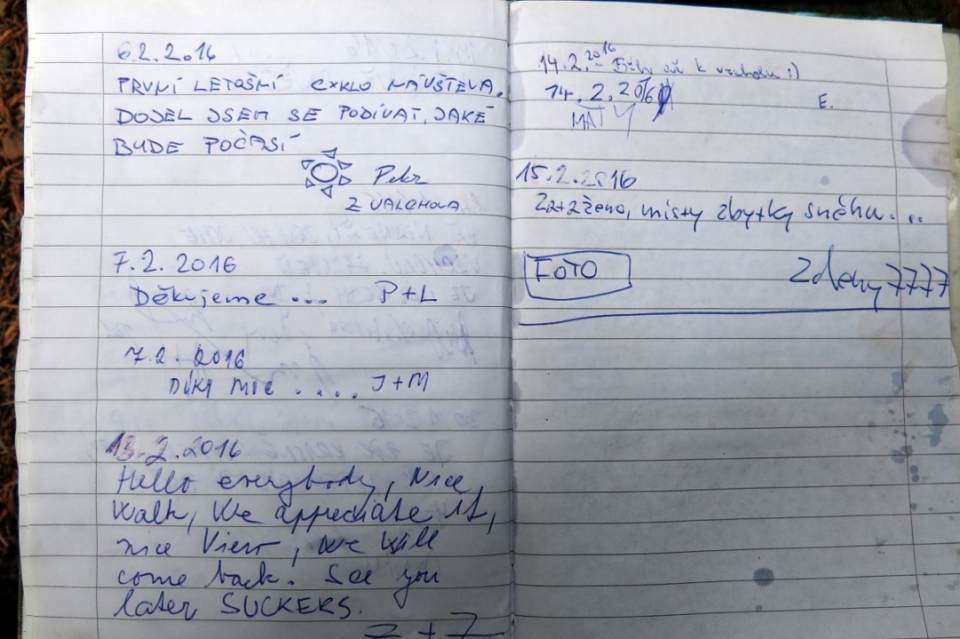 6.2.2016
PRVNÍ LETOŠNÍ CYKLO NÁVŠTEVA.
DOJEL JSEM SE PODÍVAT, JAKÉ
BUDE POČASÍ
Petr
Z VALCHOVA
7.2.2016
Děkujeme ... P+L
7.2.2016
DÍKY MOC .... J+M
13.2.2016
Hello everybody, Nice
Walk, We appreciate it,
nice View, we will
come back. See you
later SUCKERS.
Z+Z
14.2.2016 - až k vrcholu :)
14.2.2016
E.
MATY
15.2.2016
Zataženo, místy zbytky sněhu...
FOTO
Zdeny7777